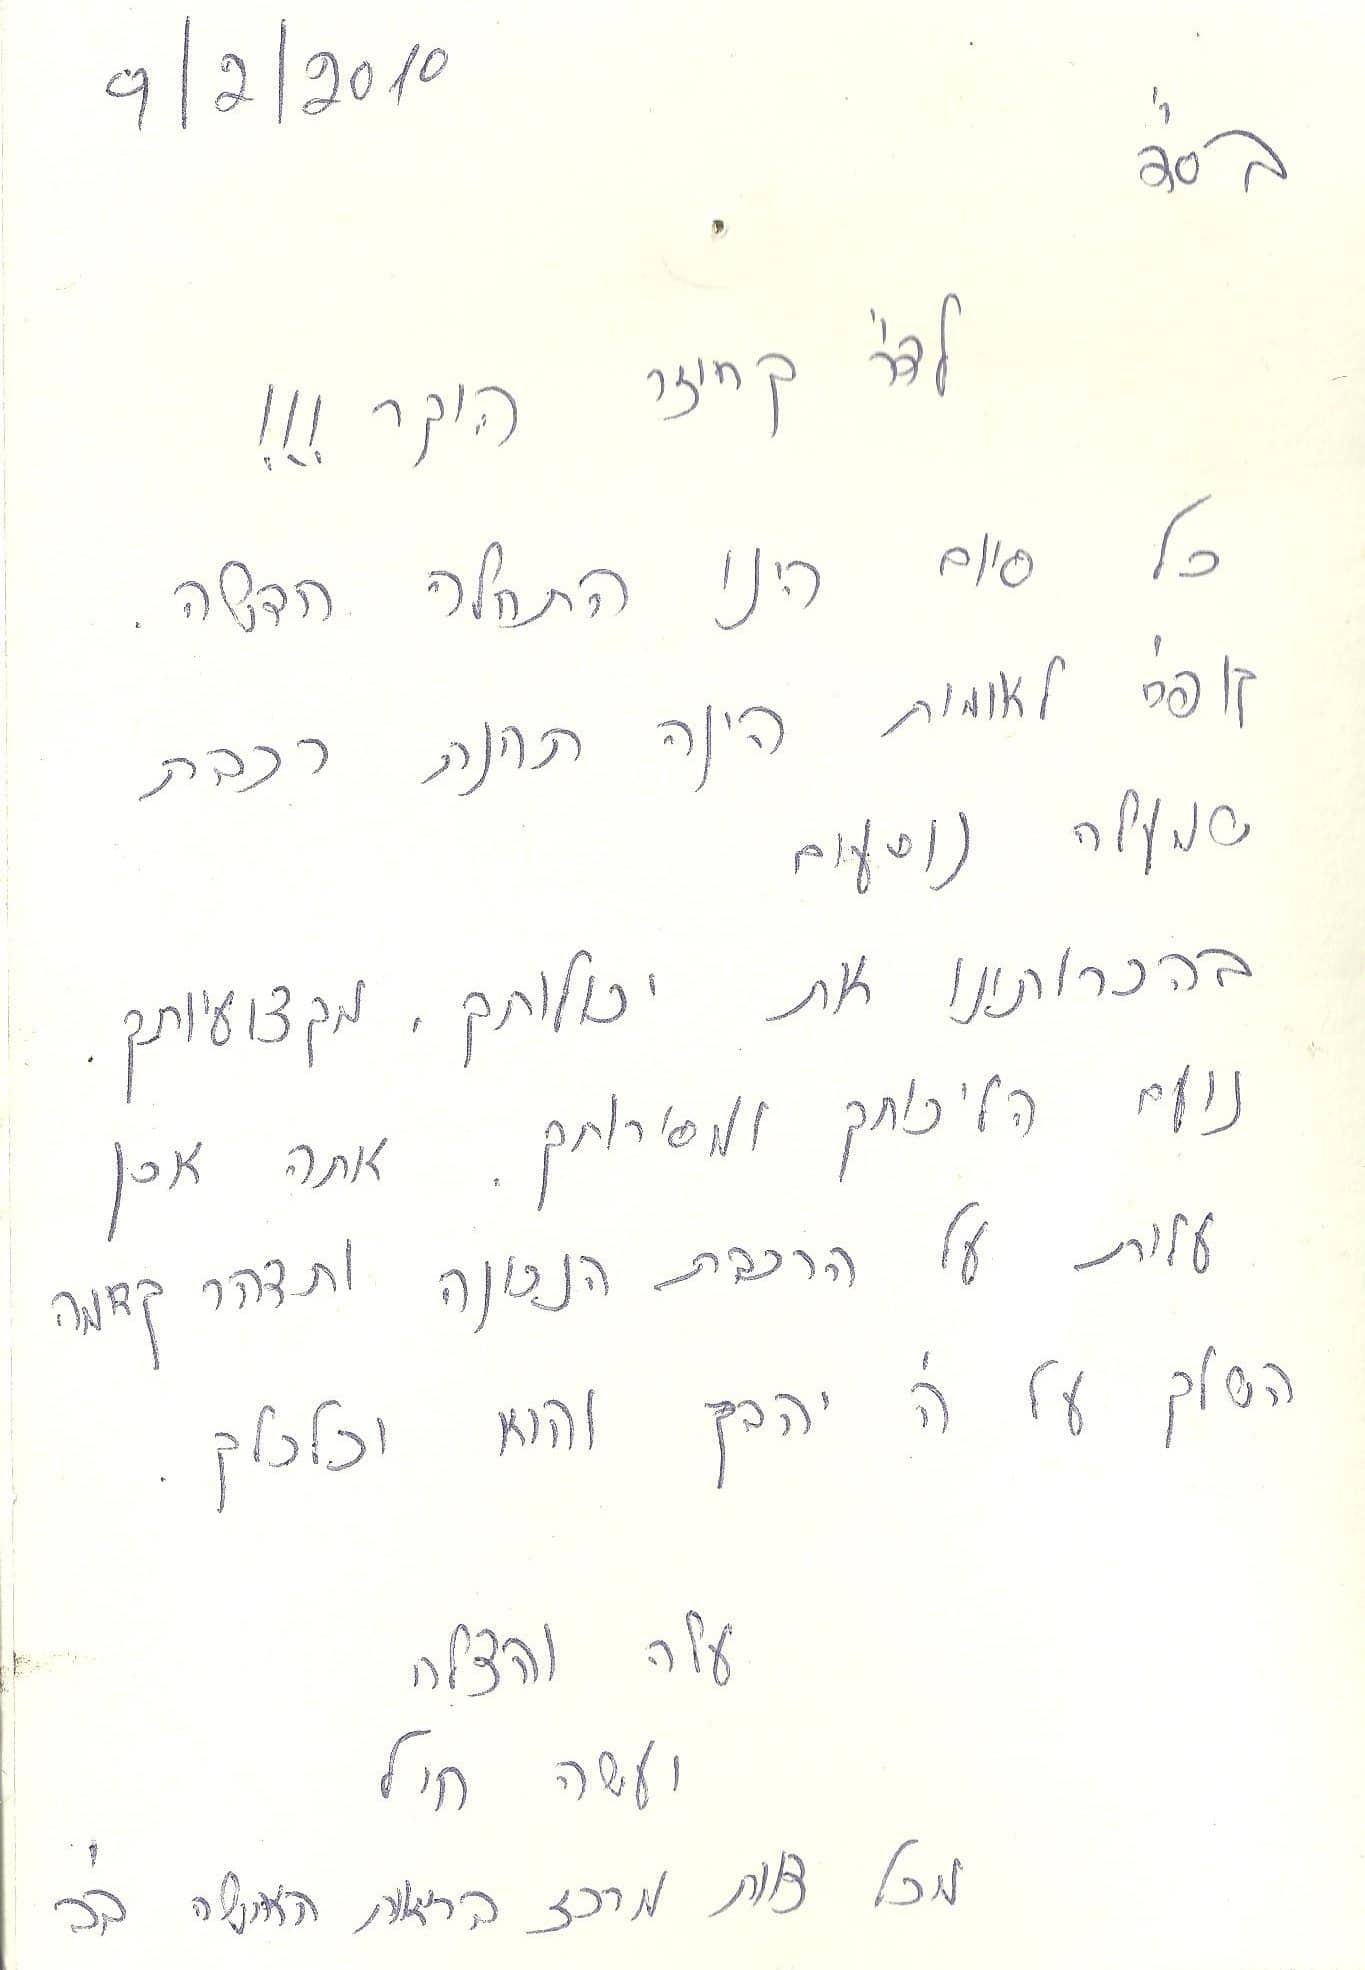 9/2/2010
בס"ד
לדר' קחיזר היקר !!!
כל סיום הינו התחלה חדשה.
קופ"ח לאומית הינה תחנת רכבת
שמעלה נוסעים
בהכרותינו את יכולותך, מקצועיותך,
נועם הליכותך ומסירותך. אתה אכן
עלית על הרכבת הנכונה ותדהר קדימה
השלך על ה' יהבך והוא יכלכלך.
עלה והצלח
ועשה חיל
מכל צוות מרכז בריאות האישה ב"ב